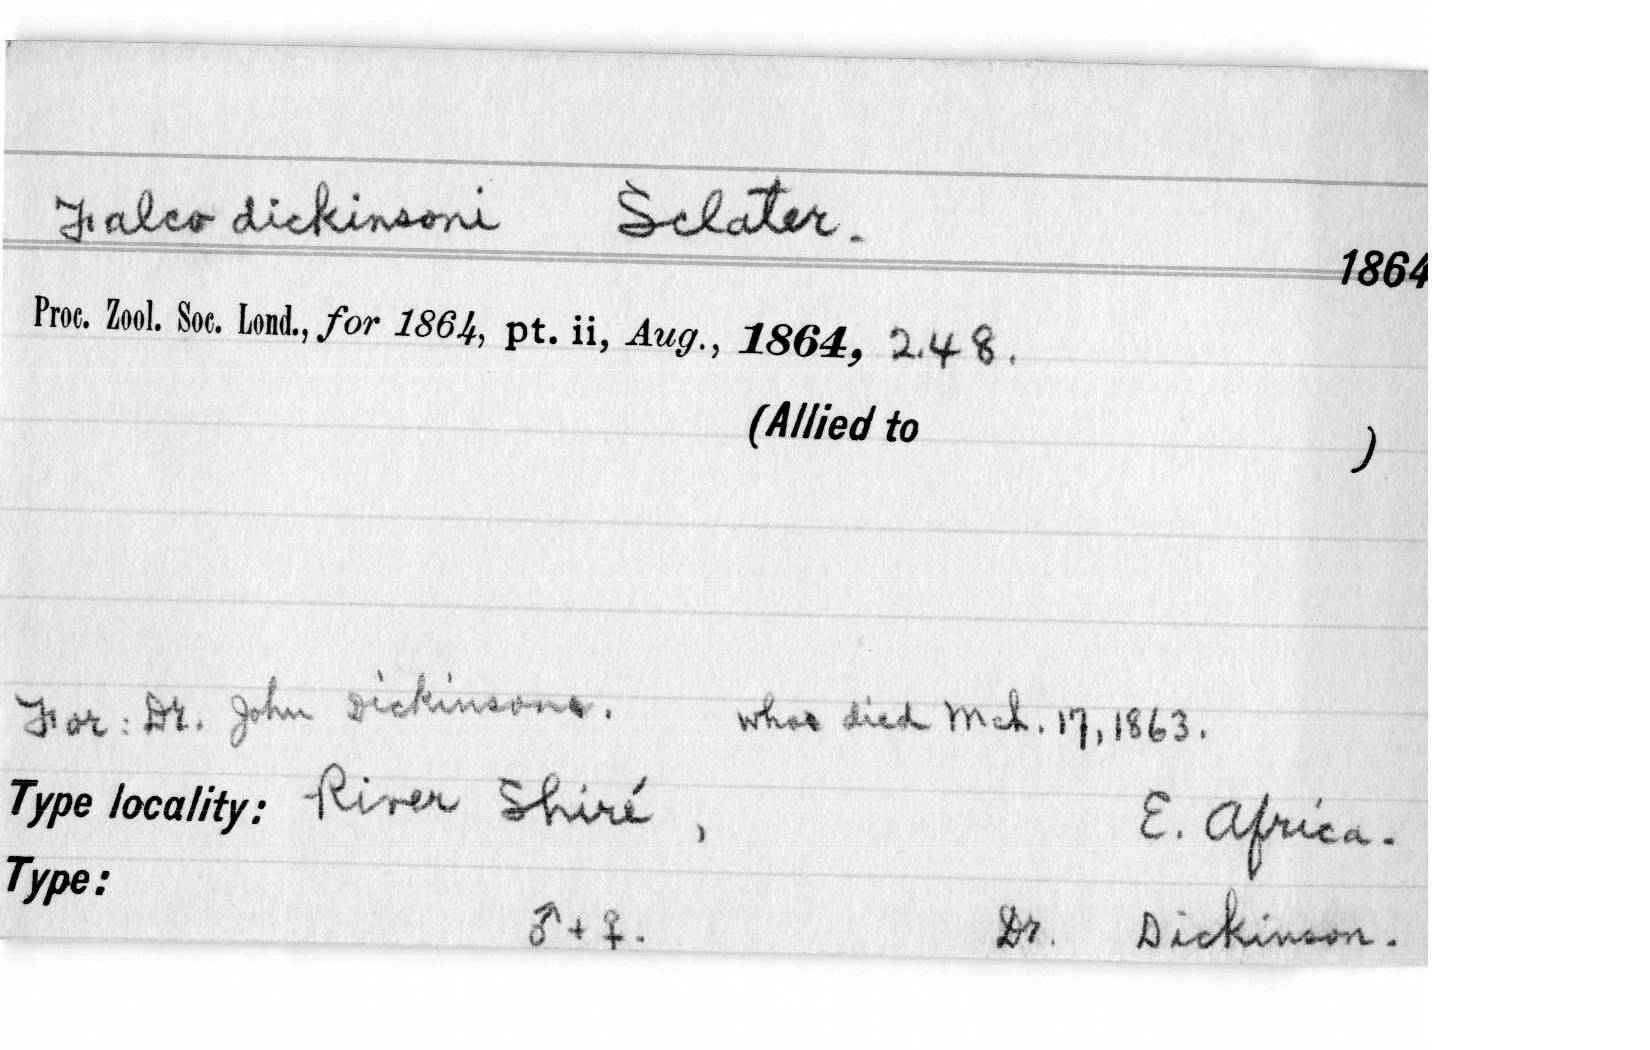 Falco dickinsoni Sclater.
1864
Proc. Zool. Soc. Lond., for 1864, pt. ii, Aug., 1864, 248.
(Allied to )
For: Dr. John Dickinson. who died Mch. 17, 1863.
Type locality: River Shiré, E. Africa.
Type:
♂ + ♀. Dr. Dickinson.